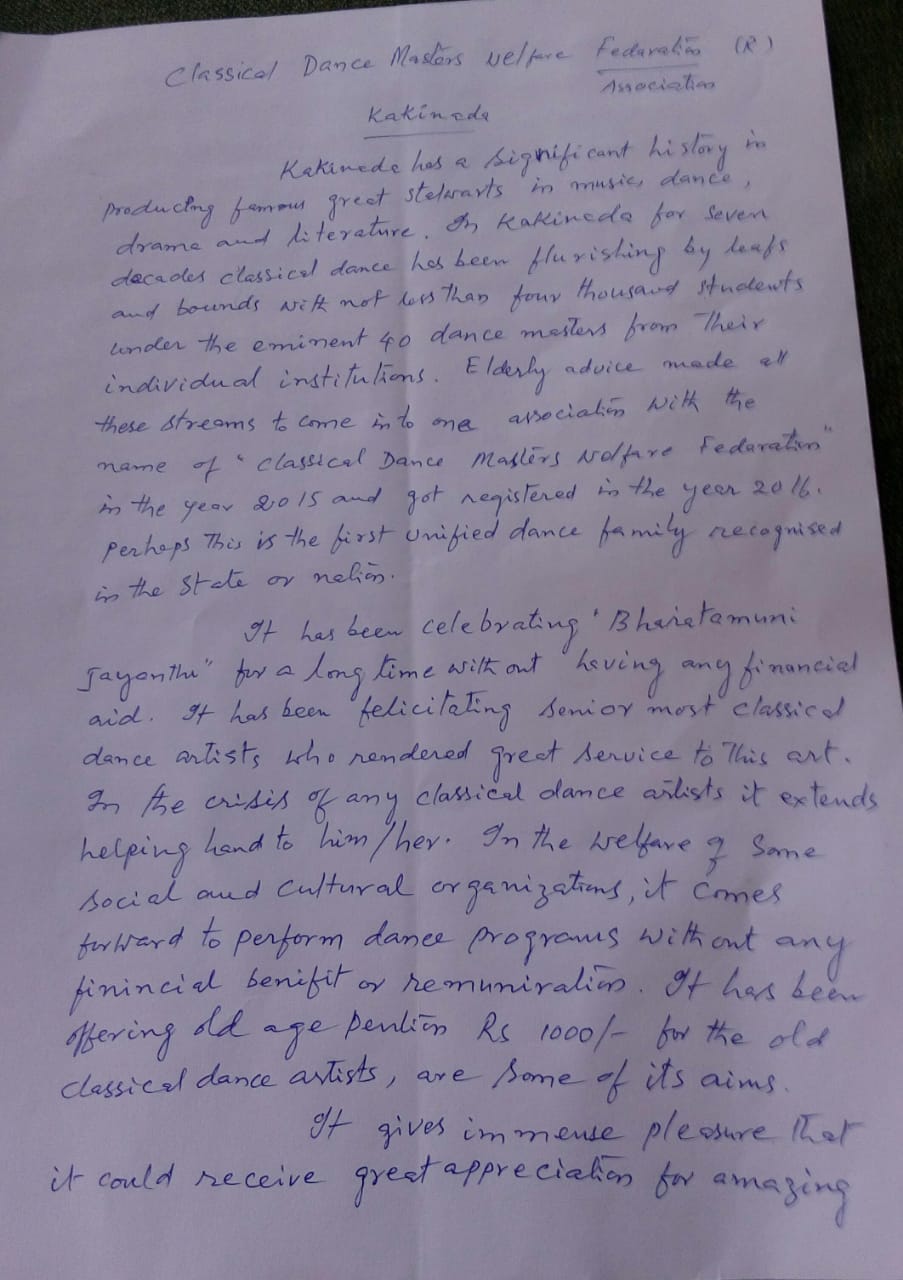 Classical Dance Masters Welfare Fedaration (R)
Association
Kakinada
Kakinada has a significant history in
producing famous great stelwarts in music, dance,
drama and literature. In Kakinada for seven
decades classical dance has been flurishing by leafs
and bounds with not less than four thousand students
under the eminent 40 dance masters from their
individual institutions. Elderly advice made all
these streams to come into one association with the
name of "Classical Dance Masters Welfare Fedaration"
in the year 2015 and got registered in the year 2016.
perhaps This is the first unified dance family recognised
in the State or nation.
It has been celebrating "Bharatamuni
Jayanthi" for a long time with out having any financial
aid. It has been felicitating senior most classical
dance artists who rendered great service to This art.
In the crisis of any classical dance artists it extends
helping hand to him/her. In the welfare of Some
social and cultural organizations, it comes
forward to perform dance programs without any
finincial benifit or remuniration. It has been
offering old age pention Rs 1000/- for the old
classical dance artists, are some of its aims.
It gives immense pleasure that
it could receive great appreciation for amazing